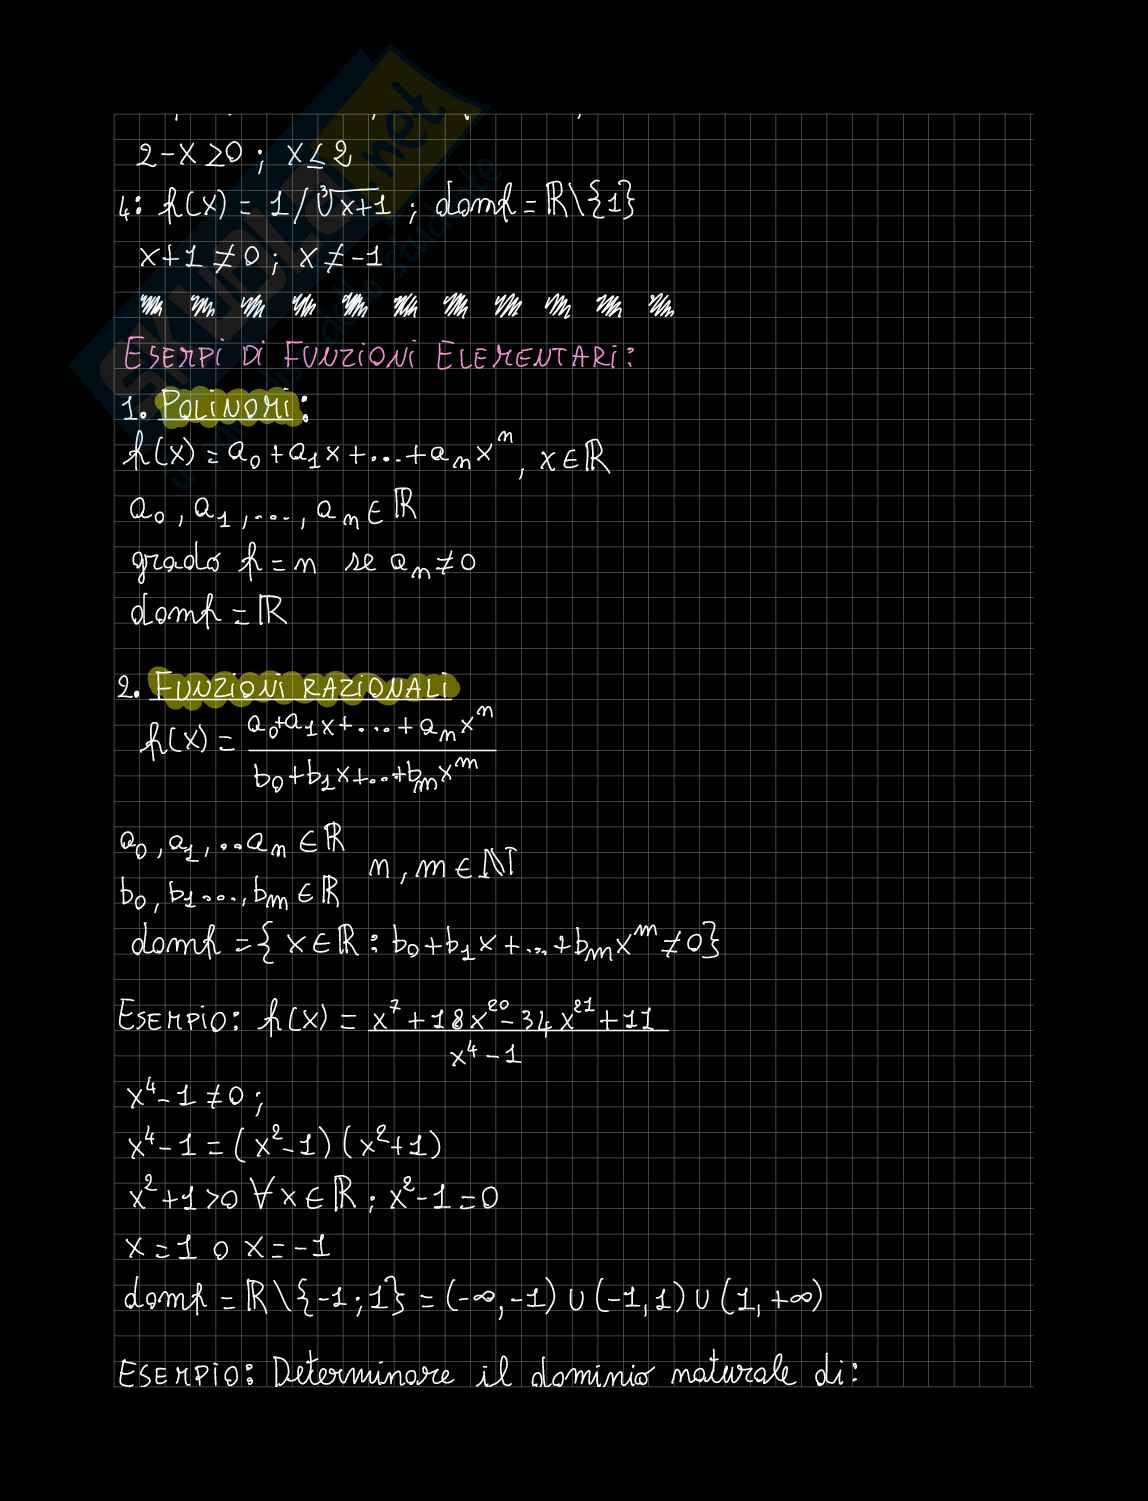 2-x ≥0 ; x ≤ 2
4: f(x) = 1/∛x+1 ; domf = ℝ\{1}
x+1 ≠ 0 ; x ≠ -1
ESEMPI DI FUNZIONI ELEMENTARI:
1. POLINOMI:
f(x) = a₀+a₁x+...+aₙxⁿ, x∈ℝ
a₀, a₁, ..., aₙ∈ℝ
grado f = n se aₙ≠0
domf = ℝ
2. FUNZIONI RAZIONALI
f(x) = a₀+a₁x+...+aₙxⁿ
b₀+b₁x+...+bₘxᵐ
a₀, a₁, ..aₙ ∈ℝ
n, m ∈ ℕ
b₀, b₁..., bₘ ∈ℝ
domf = { x∈ℝ : b₀+b₁x+...+bₘxᵐ ≠0}
ESEMPIO: f(x) = x⁷+18x²⁰-34x²¹+11
x⁴-1
x⁴-1 ≠0 ;
x⁴-1 = (x²-1)(x²+1)
x²+1>0 ∀x∈ℝ ; x²-1=0
x=1 o x=-1
domf = ℝ\{-1;1} = (-∞,-1) ∪ (-1,1) ∪ (1,+∞)
ESEMPIO: Determinare il dominio naturale di: